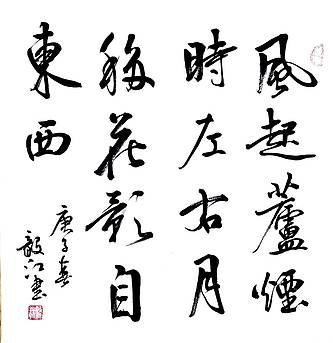 風起蘆煙
時左右月
移花影自
東西
庚子春
毅江書